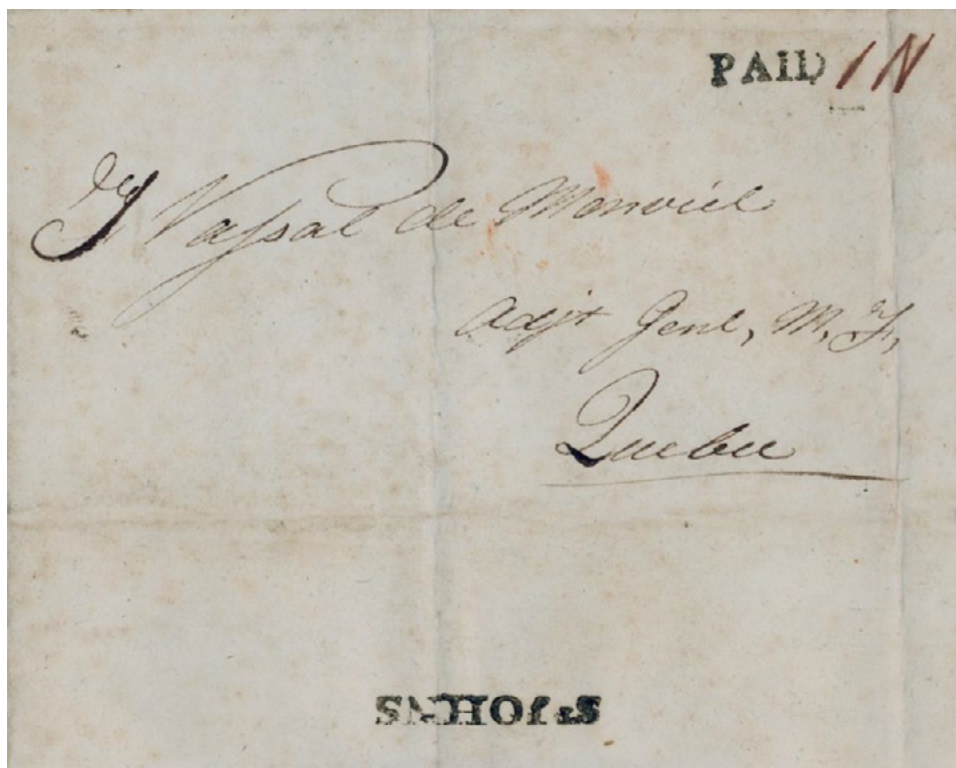 PAID 1N
J Vassal de Monviel
Adjt Genl, M, F,
Quebec
ST JOHNS